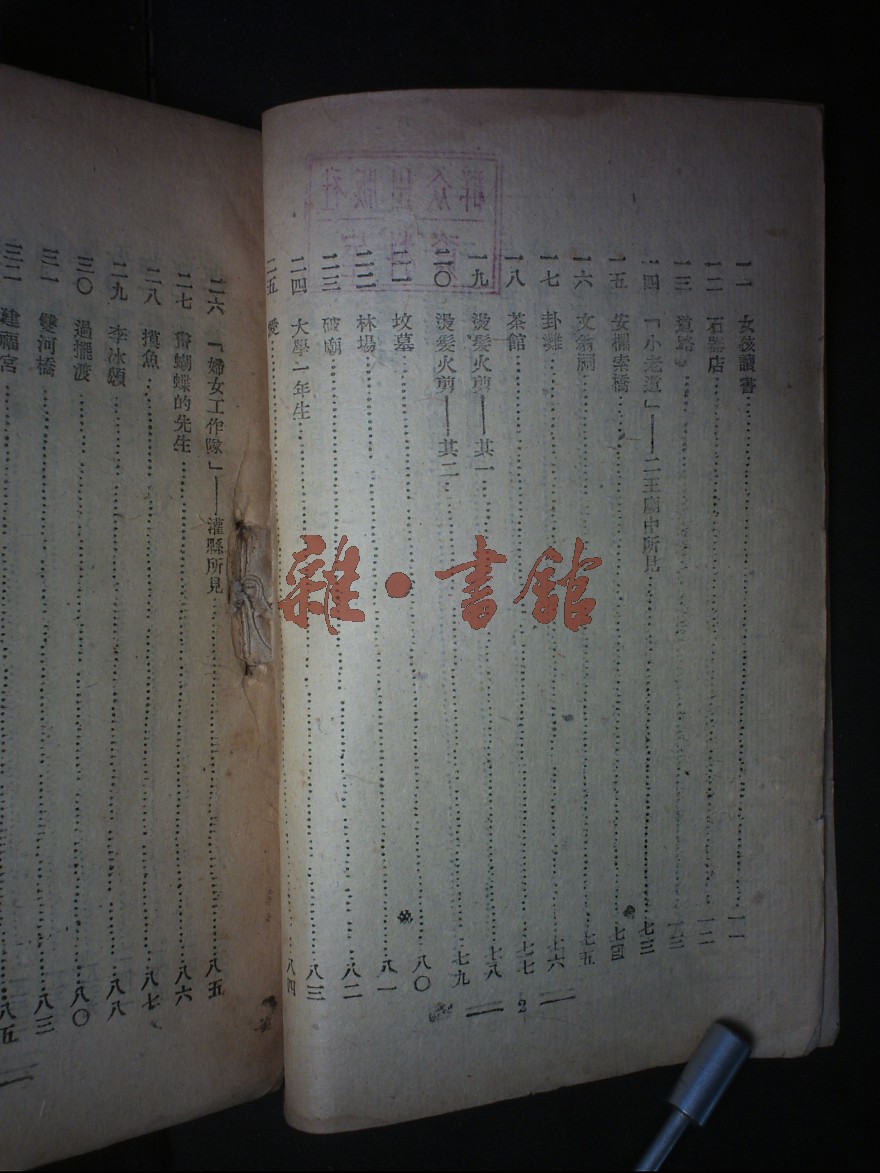 群众出版社
一一 女孩讀書 一一
一二 石器店 一二
一三 道路 一三
一四 「小老道」——二王廟中所見 七三
一五 安欄索橋 七四
一六 文翁祠 七五
一七 卦灘 七六
一八 茶館 七七
一九 燙髮火剪——其一 七八
二〇 燙髮火剪——其二 七九
二一 坟墓 八〇
二二 林場 八一
二三 破廟 八二
二四 大學一年生 八三
二五 八四
2
二六 「婦女工作隊」——灌縣所見 八五
二七 賣蝴蝶的先生 八六
二八 摸魚 八七
二九 李冰頌 八八
三〇 過擺渡 八〇
三一 雙河橋 八三
三二 建福宮 八五
雜·書館